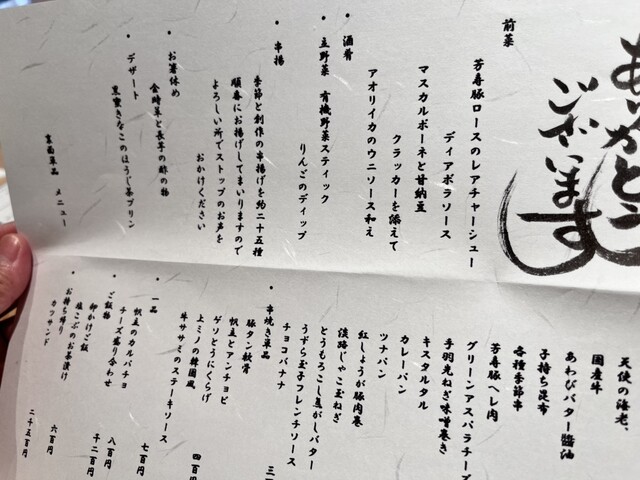 ありがとう
ございます
前菜
芳寿豚ロースのレアチャーシュー
ディアボラソース
マスカルポーネと甘納豆
クラッカーを添えて
アオリイカのウニソース和え
・酒肴
・立野菜 有機野菜スティック
りんごのディップ
・串揚
季節と創作の串揚げを約二十五種
順番にお揚げしてまいりますので
よろしい所でストップのお声を
おかけください
・お箸休め
金時草と長芋の酢の物
・デザート
黒蜜きなこのほうじ茶プリン
裏面単品 メニュー
天使の海老、
国産牛
あわびバター醬油
子持ち昆布
各種季節串
芳寿豚ヘレ肉
グリーンアスパラチーズ
手羽先ねぎ味噌巻き
キスタルタル
カレーパン
ツナパン
紅しょうが豚肉巻
淡路じゃこ玉ねぎ
とうもろこし焦がしバター
うずら玉子フレンチソース
チョコバナナ
・串焼き単品
豚タン軟骨
帆立とアンチョビ
ゲソとうにくらげ
上ミノの韓国風
牛ササミのステーキソース 四百円
・一品
帆立のカルパチョ 七百円
チーズ盛り合わせ 八百円
・ご飯物
卵かけご飯 千二百円
塩こぶのお茶漬け 六百円
・お持ち帰り
カツサンド 二千五百円